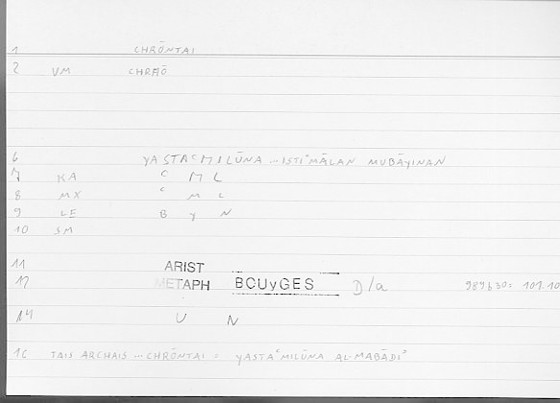 1 CHRŌNTAI
2 VM CHRAŌ
6 YASTAʿMILŪNA ... ISTIʿMĀLAN MUBĀYINAN
7 KA ʿ M L
8 MX ʿ M L
9 LE B Y N
10 SM
11 ARIST
12 METAPH BOUyGES D/a 989b30: 101.10
14 U N
16 TAIS ARCHAIS ... CHRŌNTAI = YASTAʿMILŪNA AL-MABĀDIʾ